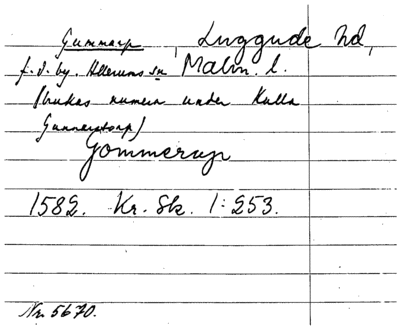 Gummarp, Luggude hd,
f.d. by. Allerums sn Malm. l.
(brukas numera under Kulla
Gunnerstorp)
Gommerup
1582. Kr. Sk. 1:253.
Nr. 5670.